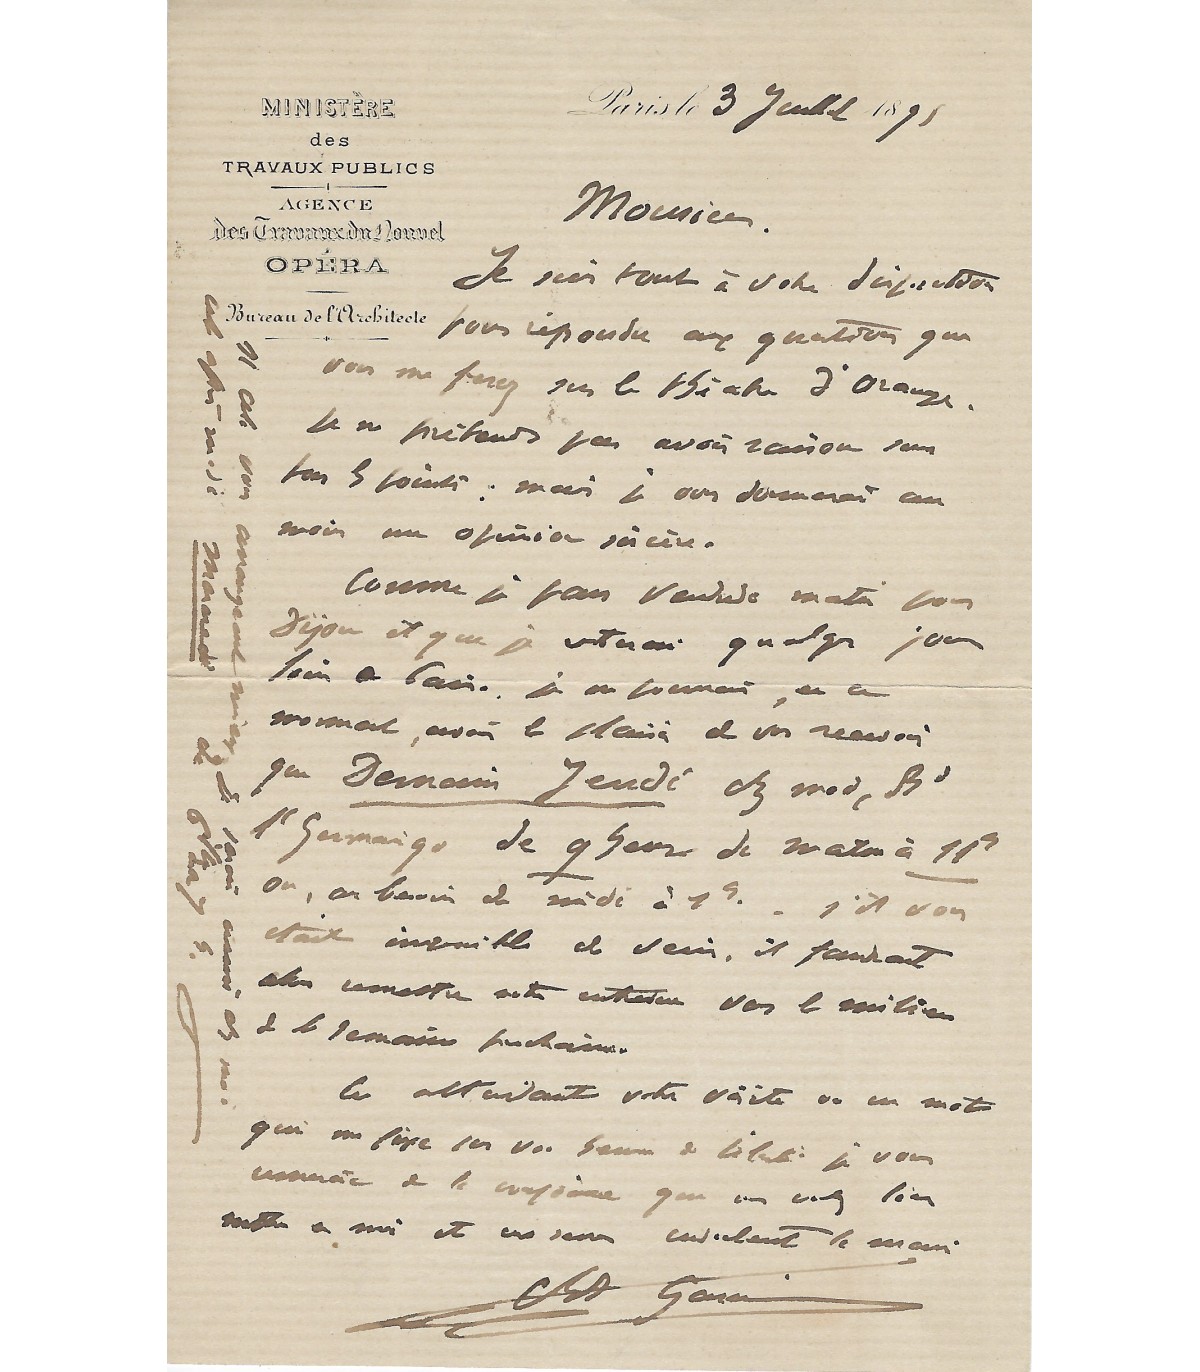 MINISTÈRE
des
TRAVAUX PUBLICS
AGENCE
des Travaux du Nouvel
OPÉRA
Bureau de l'Architecte
Paris le 3 Juillet 1895
Monsieur.
Je suis tout à votre disposition
pour répondre aux questions que
vous me ferez sur le théâtre d'Orange.
Je ne prétends pas avoir raison sur
tous les points ; mais je vous donnerai au
moins une opinion sincère.
Comme je pars Vendredi matin pour
Dijon et que je resterai quelques jours
loin de Paris, je ne pourrai, en ce
moment, avoir le plaisir de vous recevoir
que Demain Jeudi chez moi, Bd
St Germain 90 de 9 heures du matin à 11h
ou, au besoin de midi à 1h. - S'il vous
était impossible de venir, il faudrait
alors remettre notre entretien vers le milieu
de la semaine prochaine.
En attendant votre visite ou un mot
qui me fixe sur vos heures de liberté je vous
remercie de la confiance que vous voulez bien
mettre en moi et vous serre cordialement la main
Ch Garnier
Si cela vous arrangeait mieux je serai aussi chez moi
cet après midi Mercredi de à 6h.